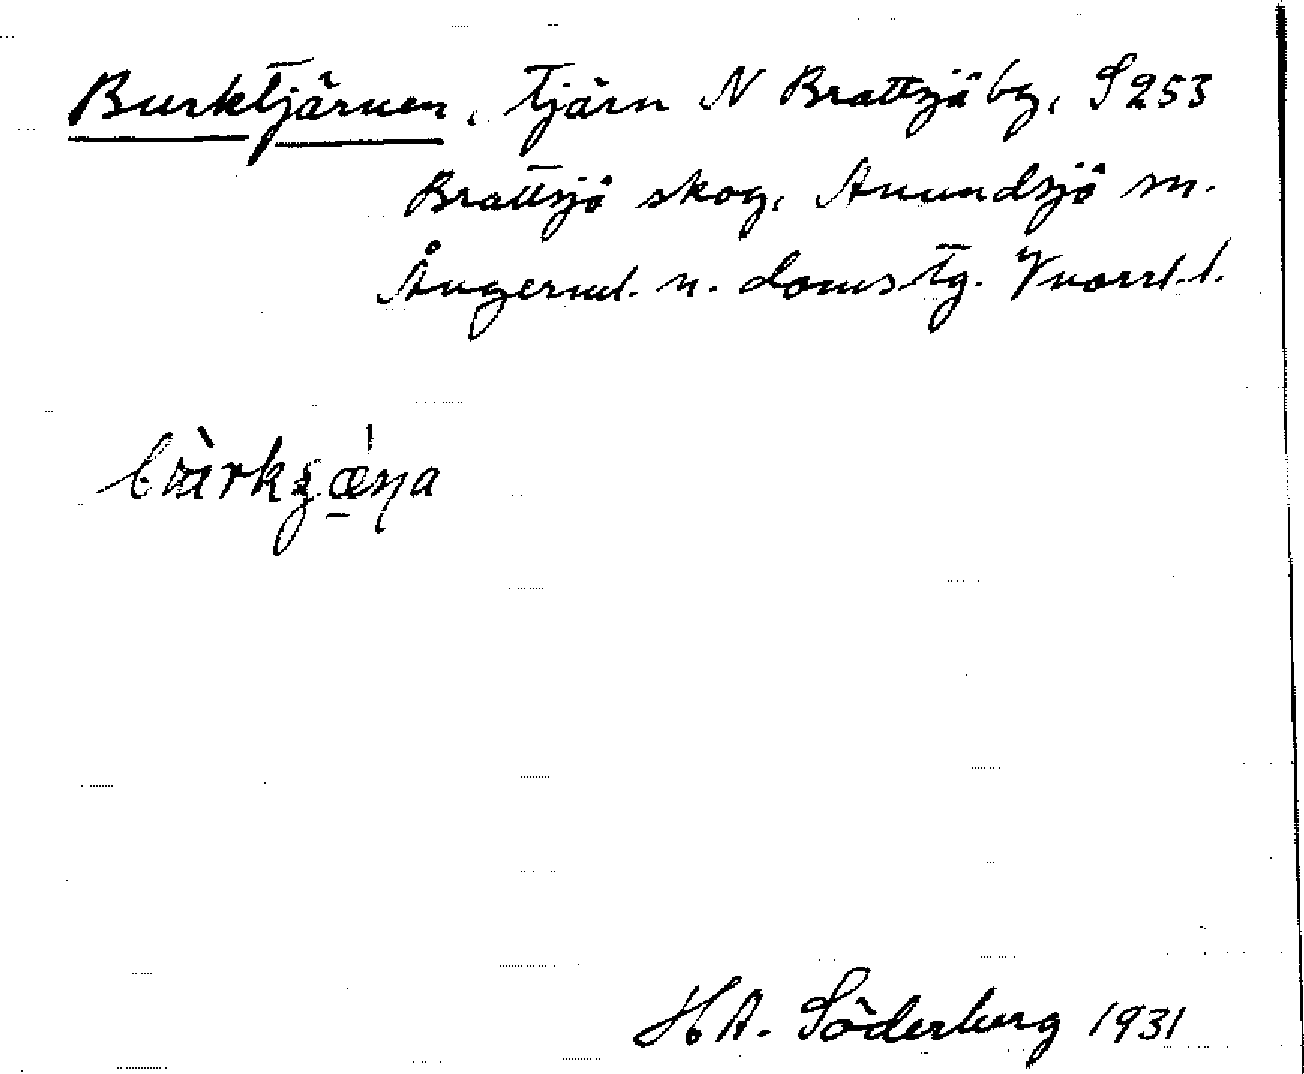 Burktjärnen, tjärn N Brattsjöbg, S 253
Brattsjö skog, Anundsjö sn.
Ångerml. n. doms tg. Vnorrl. l.
H A. Söderberg 1931